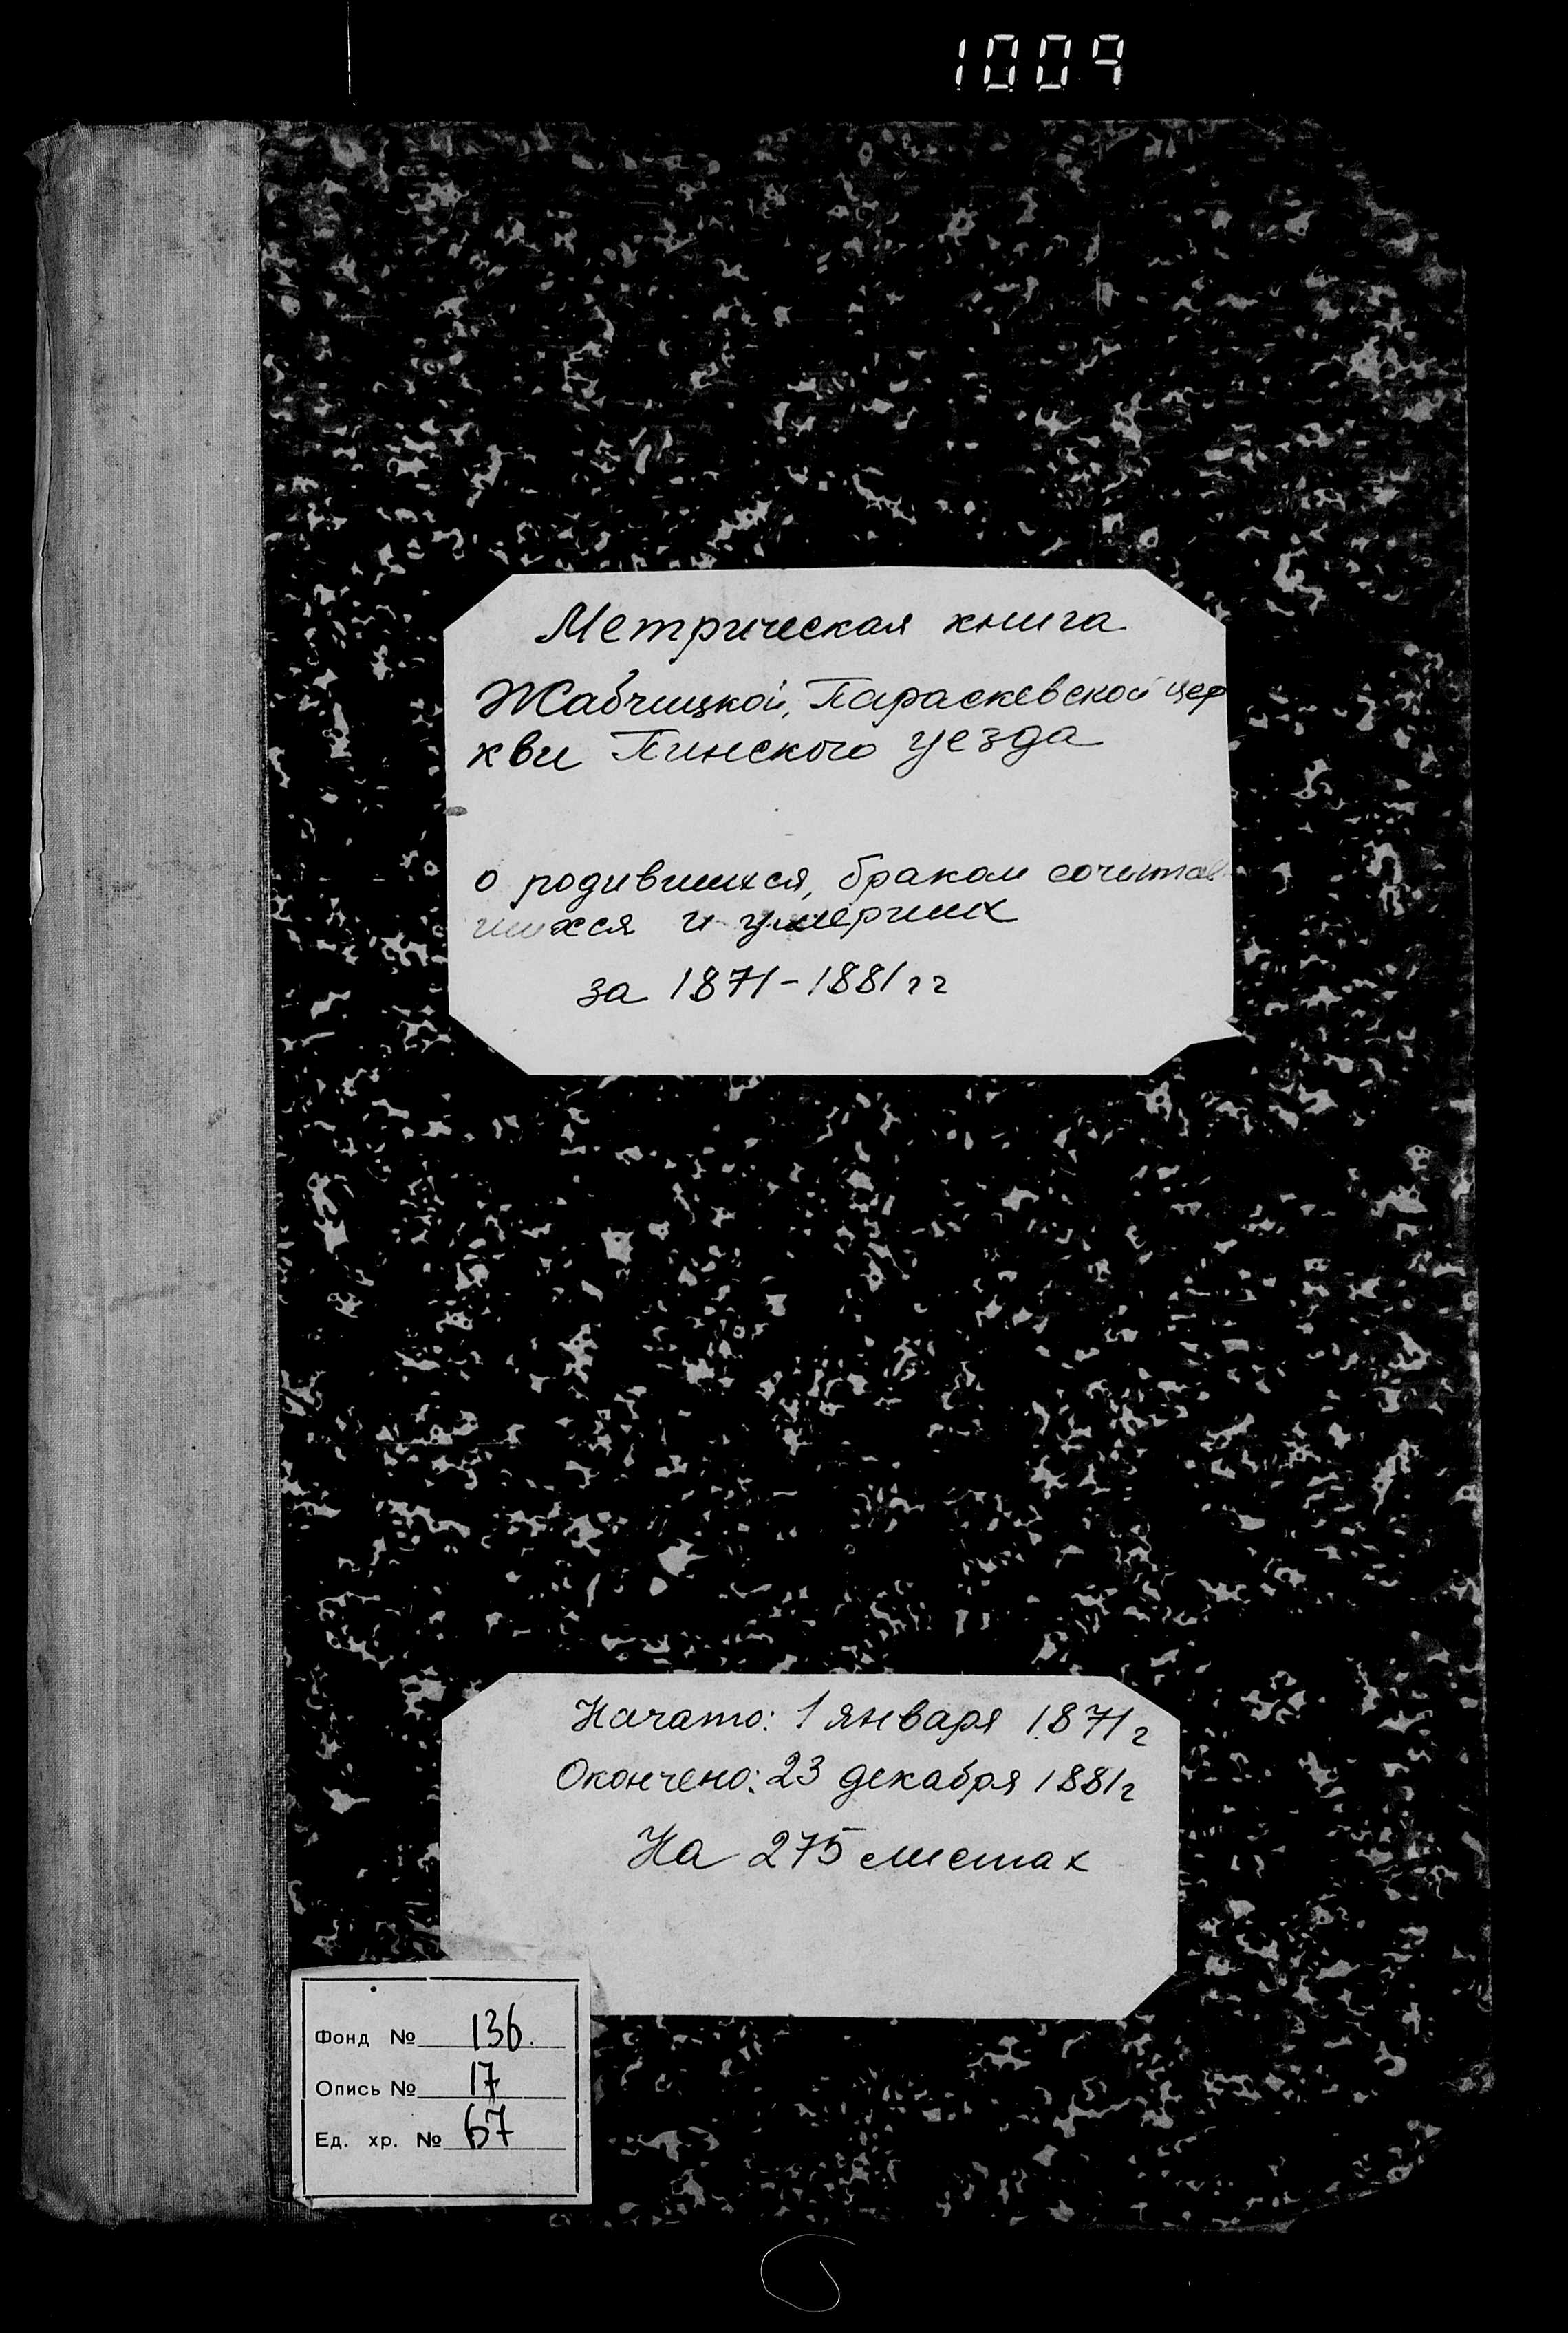 1009
Метрическая книга
Жабчицкой, Параскевской цер
кви Пинского уезда
о родившихся, браком сочитав
шихся и умерших
за 1871-1881гг
Начато: 1 января 1871г
Окончено: 23 декабря 1881г
На 275 листах
Фонд № 136.
Опись № 17
Ед. хр. № 67